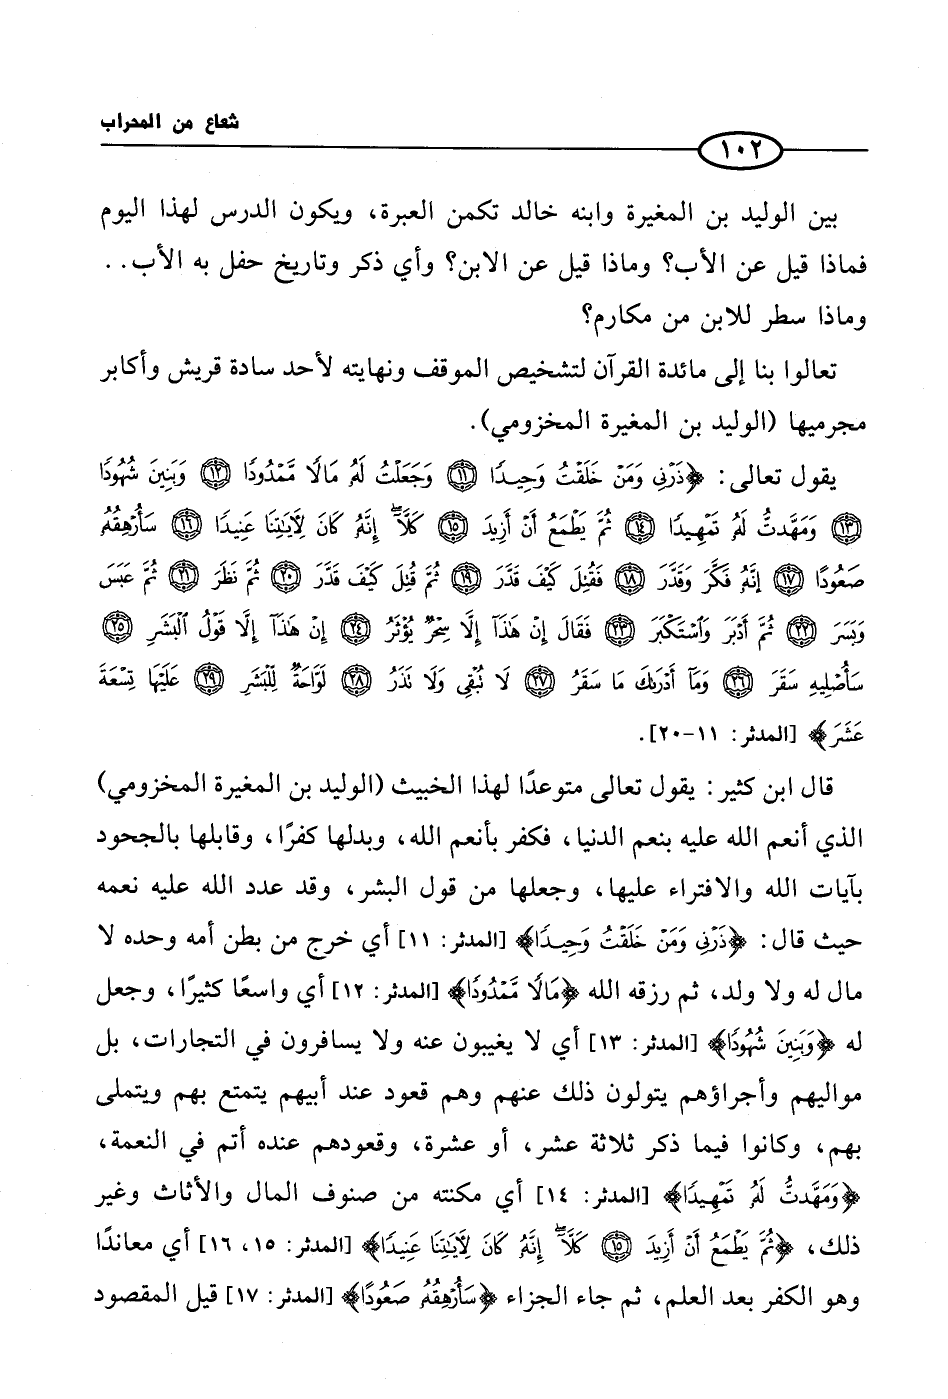 شعاع من المحراب
١٠٢
بين الوليد بن المغيرة وابنه خالد تكمن العبرة، ويكون الدرس لهذا اليوم
فماذا قيل عن الأب؟ وماذا قيل عن الابن؟ وأي ذكر وتاريخ حفل به الأب..
وماذا سطر للابن من مكارم؟
تعالوا بنا إلى مائدة القرآن لتشخيص الموقف ونهايته لأحد سادة قريش وأكابر
مجرميها (الوليد بن المغيرة المخزومي).
يقول تعالى: ﴿ذَرْنِي وَمَنْ خَلَقْتُ وَحِيدًا ۝١١ وَجَعَلْتُ لَهُ مَالًا مَّمْدُودًا ۝١٢ وَبَنِينَ شُهُودًا
۝١٣ وَمَهَّدتُّ لَهُ تَمْهِيدًا ۝١٤ ثُمَّ يَطْمَعُ أَنْ أَزِيدَ ۝١٥ كَلَّا ۖ إِنَّهُ كَانَ لِآيَاتِنَا عَنِيدًا ۝١٦ سَأُرْهِقُهُ
صَعُودًا ۝١٧ إِنَّهُ فَكَّرَ وَقَدَّرَ ۝١٨ فَقُتِلَ كَيْفَ قَدَّرَ ۝١٩ ثُمَّ قُتِلَ كَيْفَ قَدَّرَ ۝٢٠ ثُمَّ نَظَرَ ۝٢١ ثُمَّ عَبَسَ
وَبَسَرَ ۝٢٢ ثُمَّ أَدْبَرَ وَاسْتَكْبَرَ ۝٢٣ فَقَالَ إِنْ هَٰذَا إِلَّا سِحْرٌ يُؤْثَرُ ۝٢٤ إِنْ هَٰذَا إِلَّا قَوْلُ الْبَشَرِ ۝٢٥
سَأُصْلِيهِ سَقَرَ ۝٢٦ وَمَا أَدْرَاكَ مَا سَقَرُ ۝٢٧ لَا تُبْقِي وَلَا تَذَرُ ۝٢٨ لَوَّاحَةٌ لِّلْبَشَرِ ۝٢٩ عَلَيْهَا تِسْعَةَ
عَشَرَ﴾ [المدثر: ١١-٢٠].
قال ابن كثير: يقول تعالى متوعدًا لهذا الخبيث (الوليد بن المغيرة المخزومي)
الذي أنعم الله عليه بنعم الدنيا، فكفر بأنعم الله، وبدلها كفرًا، وقابلها بالجحود
بآيات الله والافتراء عليها، وجعلها من قول البشر، وقد عدد الله عليه نعمه
حيث قال: ﴿ذَرْنِي وَمَنْ خَلَقْتُ وَحِيدًا﴾ [المدثر: ١١] أي خرج من بطن أمه وحده لا
مال له ولا ولد، ثم رزقه الله ﴿مَالًا مَّمْدُودًا﴾ [المدثر: ١٢] أي واسعًا كثيرًا، وجعل
له ﴿وَبَنِينَ شُهُودًا﴾ [المدثر: ١٣] أي لا يغيبون عنه ولا يسافرون في التجارات، بل
مواليهم وأجراؤهم يتولون ذلك عنهم وهم قعود عند أبيهم يتمتع بهم ويتملى
بهم، وكانوا فيما ذكر ثلاثة عشر، أو عشرة، وقعودهم عنده أتم في النعمة،
﴿وَمَهَّدتُّ لَهُ تَمْهِيدًا﴾ [المدثر: ١٤] أي مكنته من صنوف المال والأثاث وغير
ذلك، ﴿ثُمَّ يَطْمَعُ أَنْ أَزِيدَ ۝١٥ كَلَّا ۖ إِنَّهُ كَانَ لِآيَاتِنَا عَنِيدًا﴾ [المدثر: ١٥، ١٦] أي معاندًا
وهو الكفر بعد العلم، ثم جاء الجزاء ﴿سَأُرْهِقُهُ صَعُودًا﴾ [المدثر: ١٧] قيل المقصود